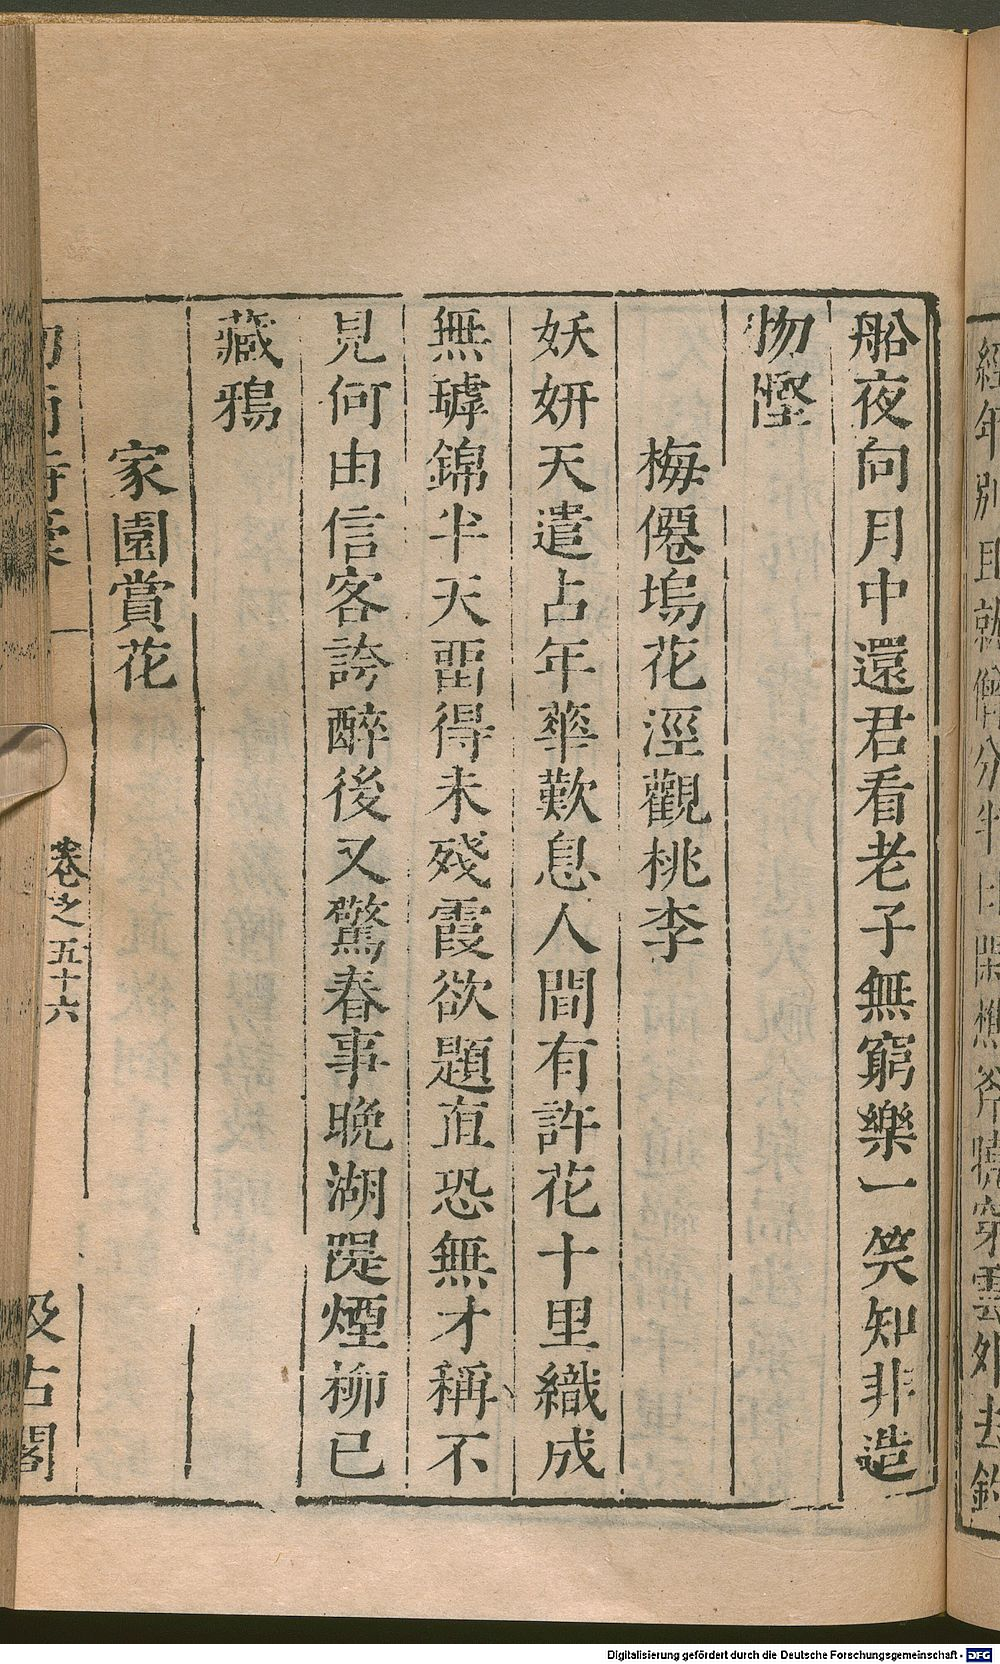 經年別
就僧分半日閑樵斧曉穿雲外去釣
船夜向月中還君看老子無窮樂一笑知非造
物慳
梅僊塢花涇觀桃李
妖妍天遣占年華歎息人間有許花十里織成
無罅錦半天畱得未殘霞欲題直恐無才稱不
見何由信客誇醉後又驚春事晩湖隄煙柳已
藏鴉
家園賞花
卷之五十六
汲古閣
Digitalisierung gefördert durch die Deutsche Forschungsgemeinschaft - DFG